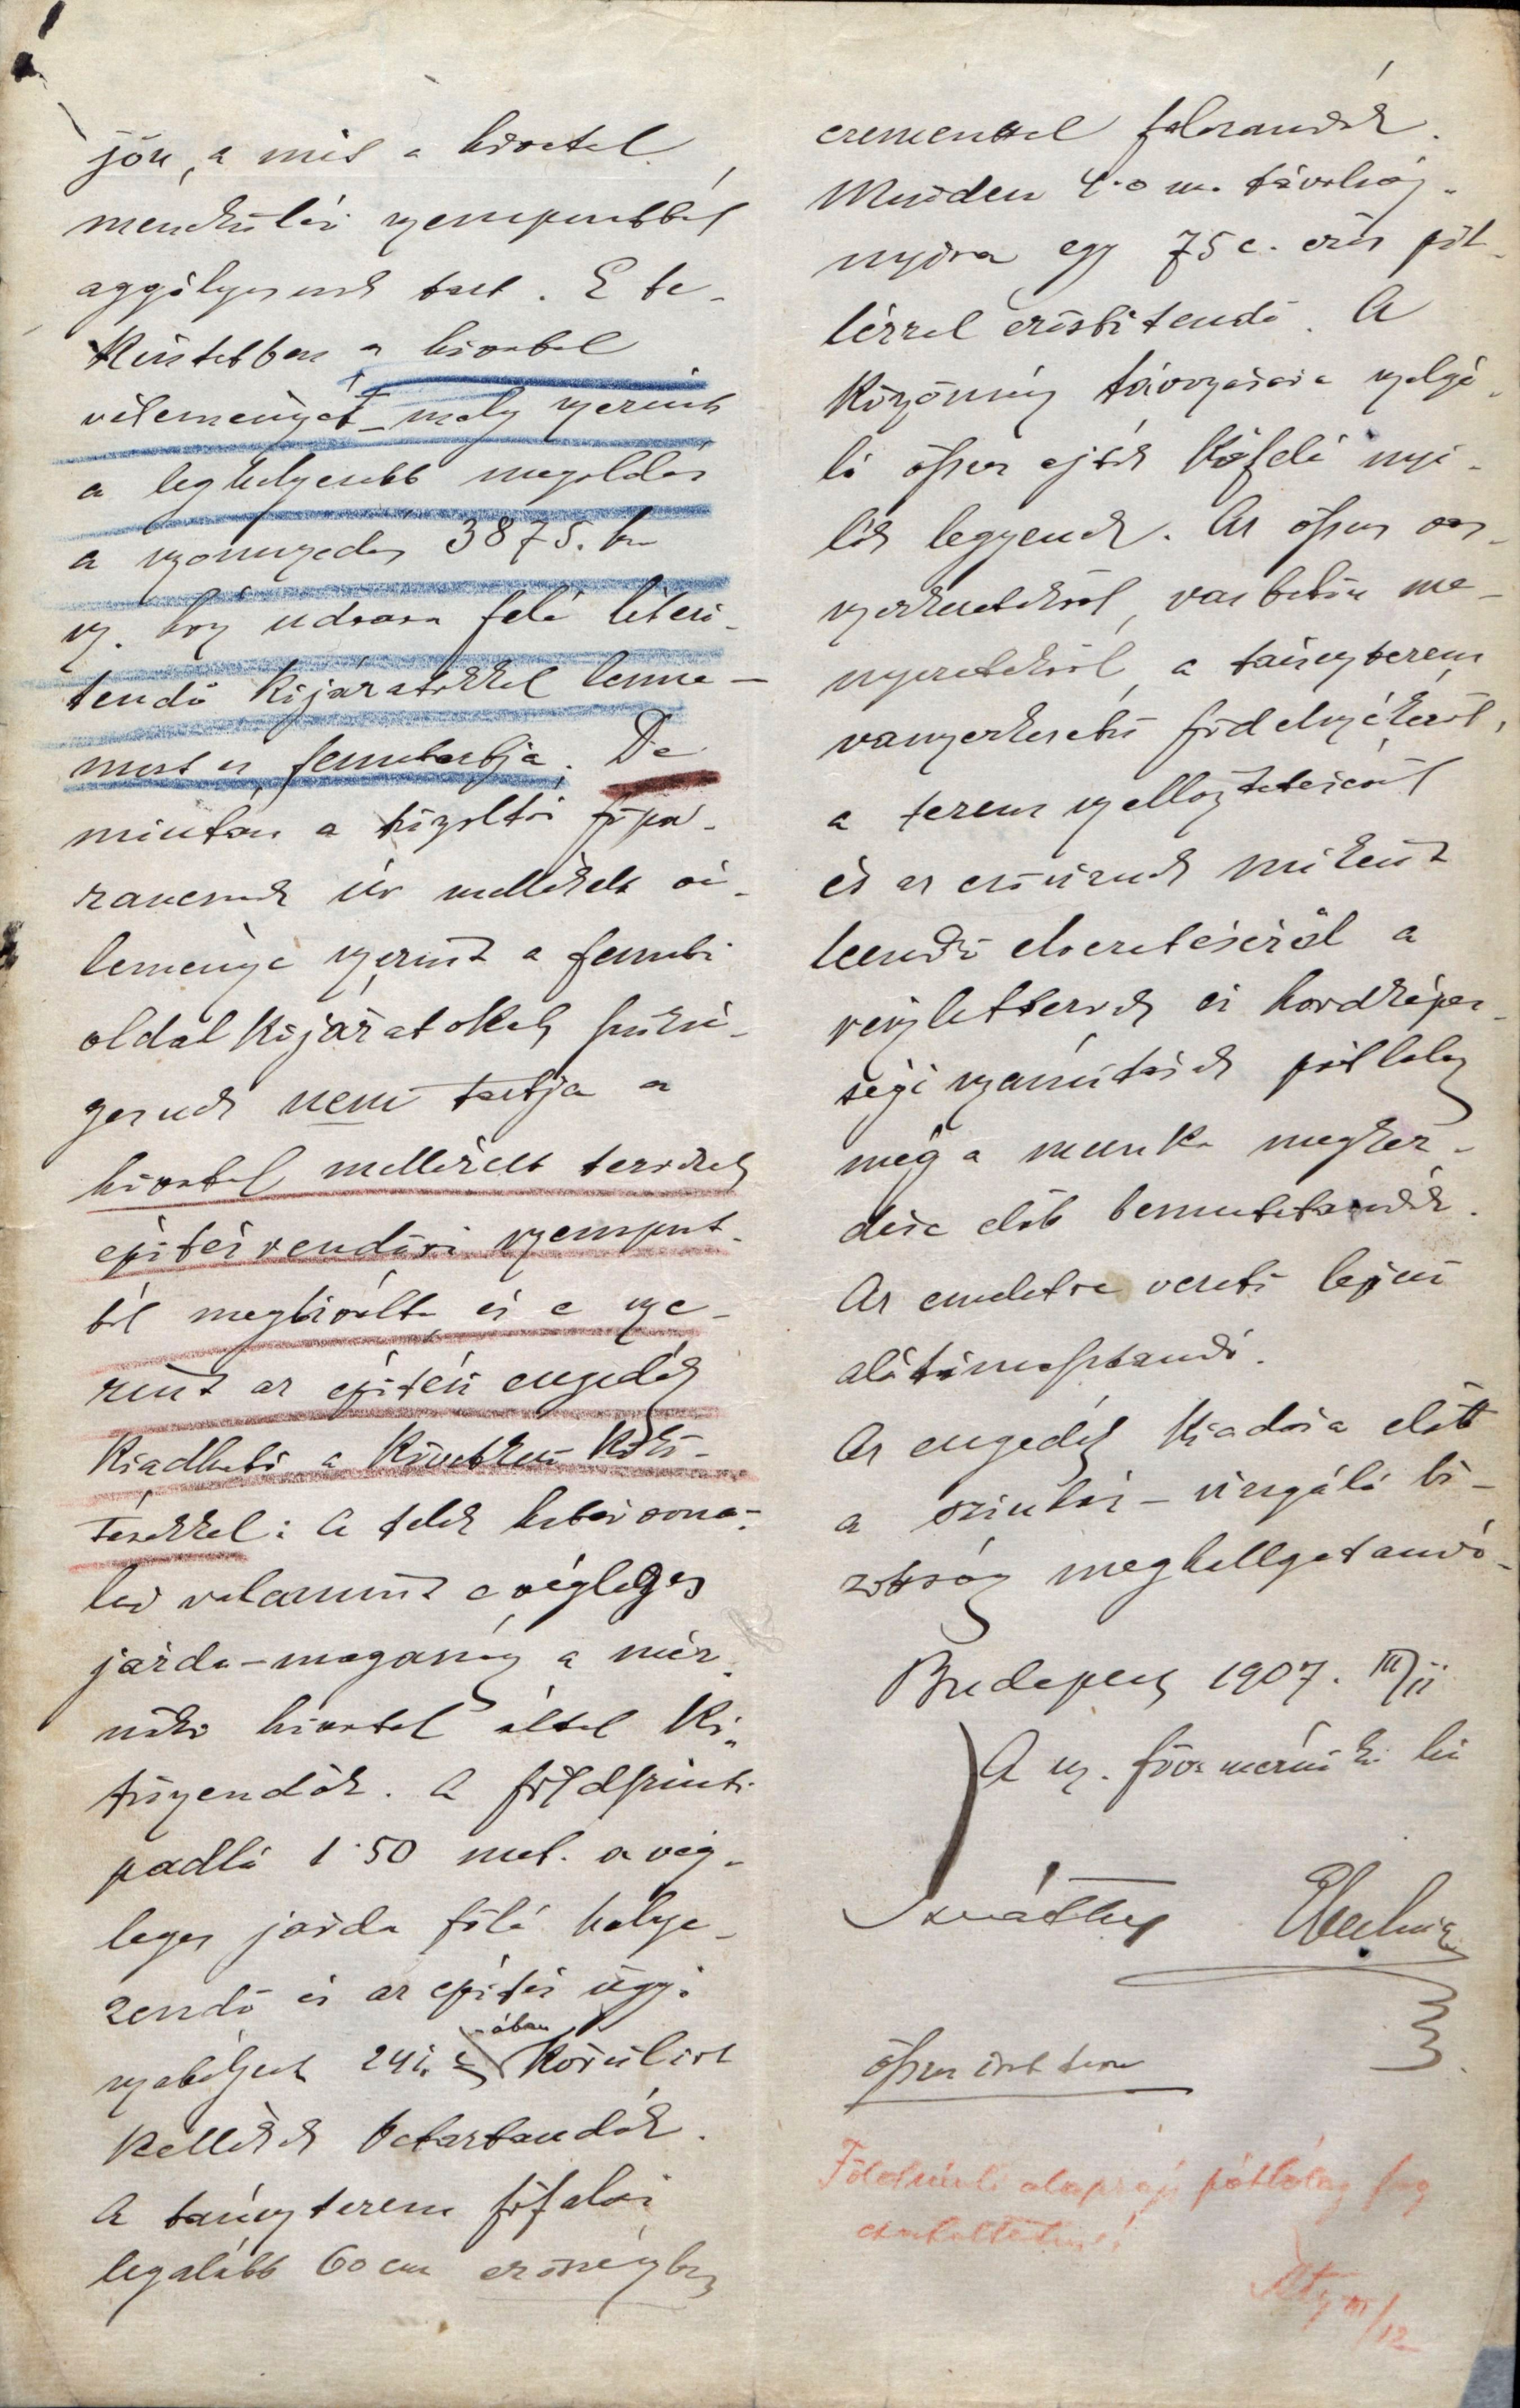 jön, a mit a hivatal
menekülési szempontból
aggályosnak tart. E te-
kintetben a hivatal
véleményét – mely szerint
a leghelyesebb megoldás
a szomszédos 3875. hr
sz. ház udvara felé létesi-
tendő kijáratokkal lenne –
most is fenntartja. De
miután a tűzoltói főpa-
rancsnok úr mellékelt vé-
leménye szerint a fennti
oldal kijáratokat szüksé-
gesnek nem tartja a
hivatal mellékelt terveket
épités rendőri szempont-
ból megbirálta és e sze-
rint az épitési engedély
kiadható a következő kikö-
tésekkel: A telek határvona-
lai valamint a végleges
járda-magasság a mér-
nöki hivatal által ki-
tűzendők. A földszinti
padló 1·50 met. a vég-
leges járda fölé helye-
zendő és az épitésügyi
szabályzat 241. §-ában körülirt
kellékek betartandók.
A táncz terem főfalai
legalább 60 cm erősségben
czementtel falazandók.
Minden 4·0 m. távolság-
nyira egy 75 c. erős pil-
lérrel erősbitendő. A
közönség távozására szolgá-
ló összes ajtók kifelé nyi-
lók legyenek. Az összes vas-
szerkezetekről, vasbetön me-
nyezetekről, a táncz terem
vasszerkezetű födelszékéről,
a terem szellőztetéséről
és az esővíznek miként
leendő elvezetéséről a
részlettervek és hordképes-
ségi számitások pótlólag
még a munka megkez-
dése előtt bemutatandók.
Az emeletre vezető lépcső
alátámasztandó.
Az engedély kiadása előtt
a szinház-vizsgáló bi-
zottság meghallgatandó.
Budapest 1907. III/11
A sz. főv. mérnöki hiv
összes irattal
Földszinti alaprajz pótlólag fog
III/12